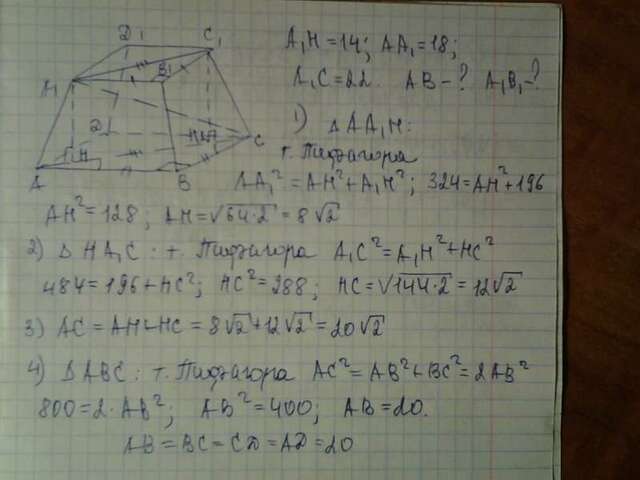 A₁H=14; AA₁=18;
A₁C=22. AB-? A₁B₁-?
1) ΔAA₁H:
т. Пифагора
AA₁²=AH²+A₁H²; 324=AH²+196
AH²=128; AH=√64·2=8√2
2) ΔHA₁C: т. Пифагора A₁C²=A₁H²+HC²
484=196+HC²; HC²=288; HC=√144·2=12√2
3) AC=AH+HC=8√2+12√2=20√2
4) ΔABC: т. Пифагора AC²=AB²+BC²=2AB²
800=2·AB²; AB²=400; AB=20.
AB=BC=CD=AD=20
D₁
C₁
A₁
B₁
D
H
C
A
B